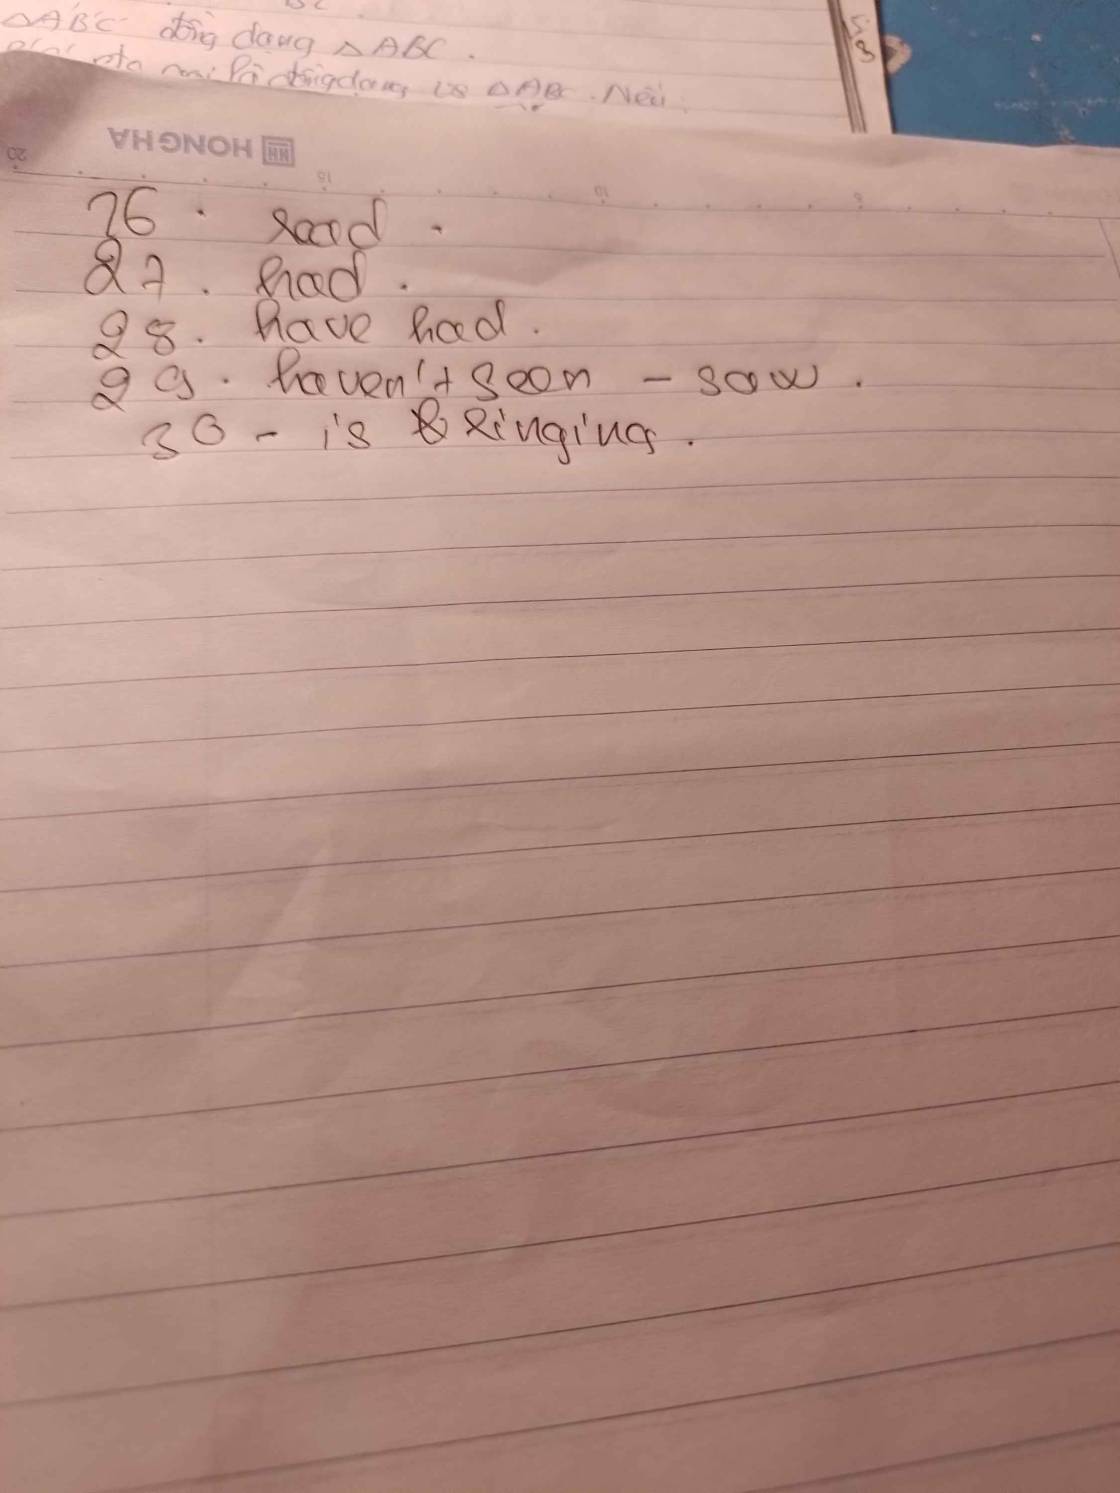 △A'B'C' đồng dạng △ABC.
đồng dạng vs △ABC. Nếu
HONG HA
20 15 10 5
26. read.
27. had.
28. have had.
29. haven't seen - saw.
30 - is ringing.